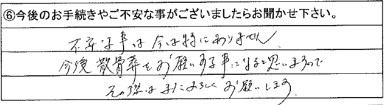 ⑥今後のお手続きやご不安な事がございましたらお聞かせ下さい。
不安な事は今は特にありません
今後散骨葬をお願いする事になると思いますので
その際はまたよろしくお願いします